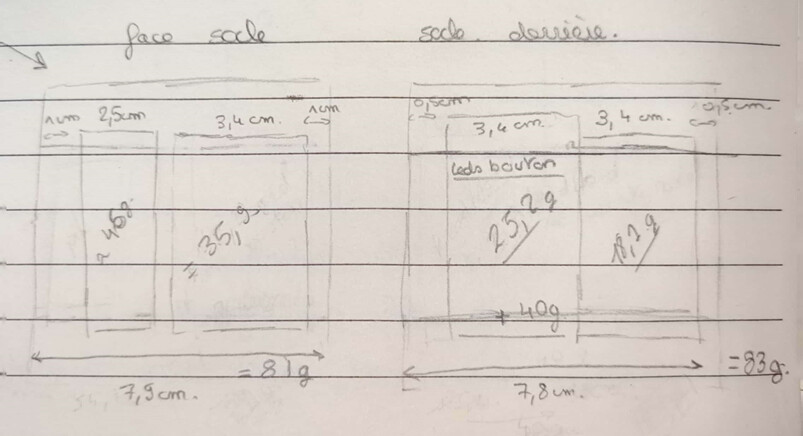 face socle
socle derrière.
1cm 2,5cm 3,4 cm. 1cm
0,5cm 3,4 cm. 3,4 cm. 0,5 cm.
leds bouton
≈ 46g
= 35,1 g
25,2 g
18,2 g
+ 40g
= 81g
= 83g.
7,9cm.
7,8cm.